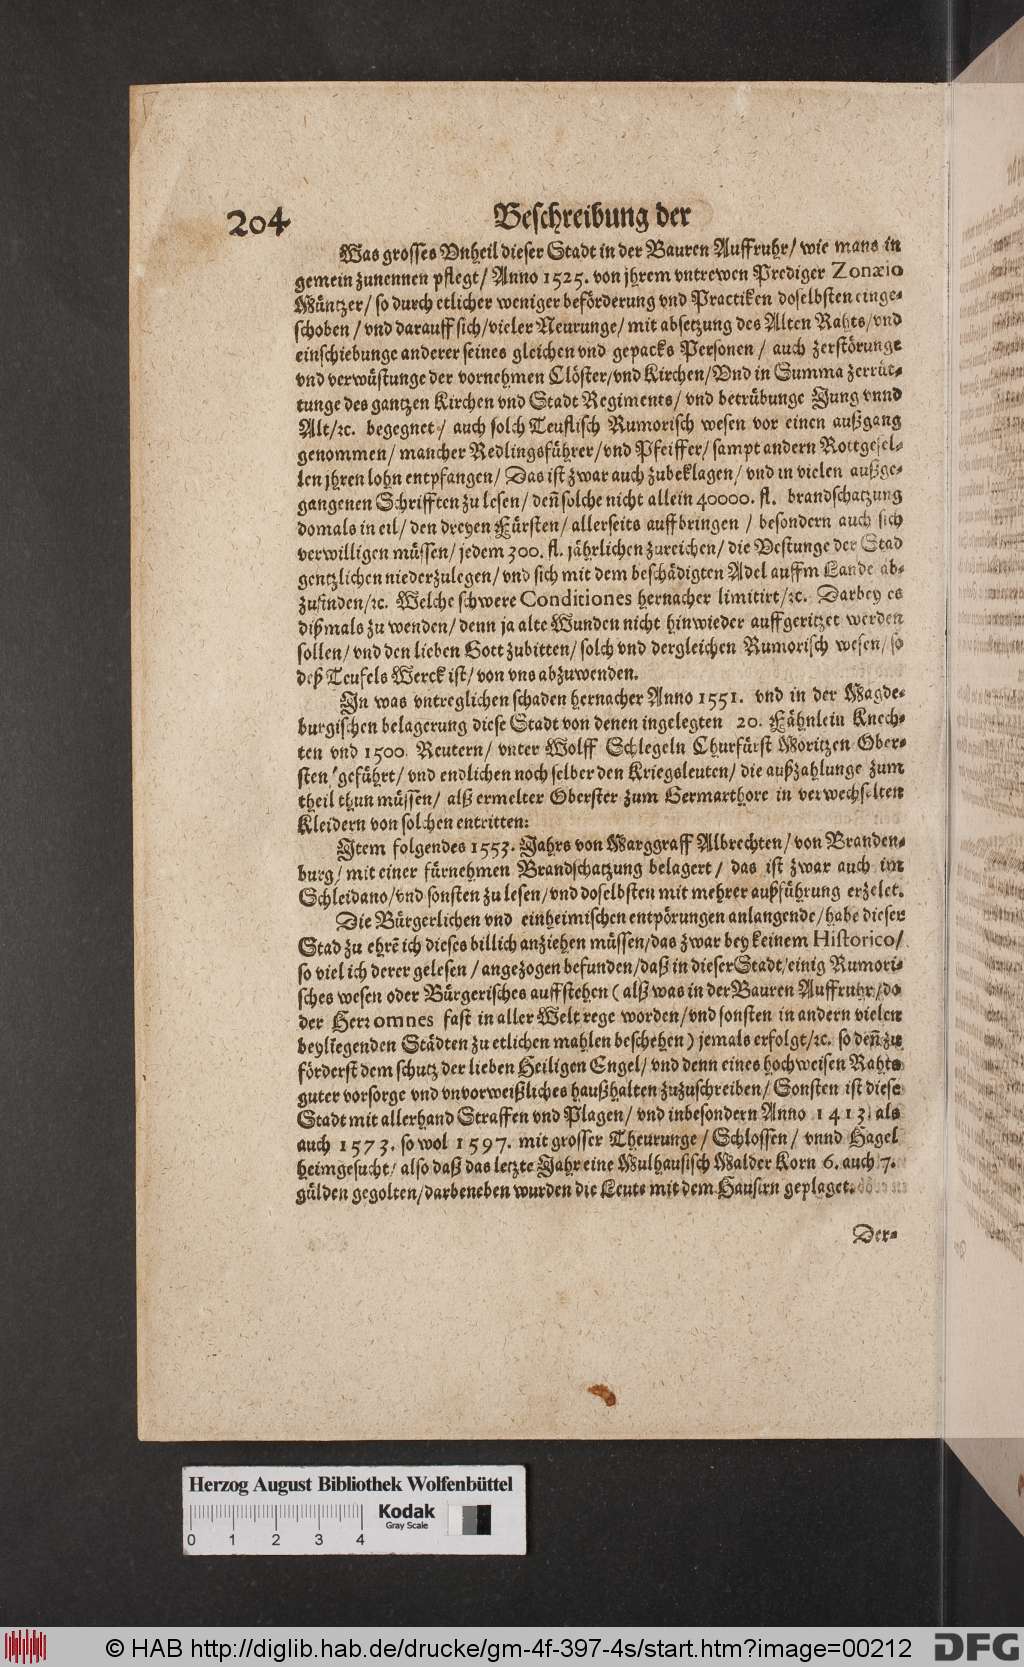 204 Beschreibung der
Was grosses Vnheil dieser Stadt in der Bauren Auffruhr/ wie mans in
gemein zunennen pflegt/ Anno 1525. von jhrem vntrewen Prediger Zonæio
Müntzer/ so durch etlicher weniger beförderung vnd Practiken doselbsten einge-
schoben/ vnd darauff sich/ vieler Neurunge/ mit absetzung des Alten Rahts/ vnd
einschiebunge anderer seines gleichen vnd gepacks Personen/ auch zerstörunge
vnd verwüstunge der vornehmen Clöster/ vnd Kirchen/ Vnd in Summa zerrüt-
tunge des gantzen Kirchen vnd Stadt Regiments/ vnd betrübunge Jung vnnd
Alt/ ꝛc. begegnet/ auch solch Teuflisch Rumorisch wesen vor einen außgang
genommen/ mancher Redlingsführer/ vnd Pfeiffer/ sampt andern Rottgesel-
len jhren lohn entpfangen/ Das ist zwar auch zubeklagen/ vnd in vielen außge-
gangenen Schrifften zu lesen/ deñ solche nicht allein 40000. fl. brandschatzung
domals in eil/ den dreyen Fürsten/ allerseits auffbringen/ besondern auch sich
verwilligen müssen/ jedem 300. fl. jährlichen zureichen/ die Vestunge der Stad
gentzlichen niederzulegen/ vnd sich mit dem beschädigten Adel auffm Lande ab-
zufinden/ ꝛc. Welche schwere Conditiones hernacher limitirt/ ꝛc. Darbey es
dißmals zu wenden/ denn ja alte Wunden nicht hinwieder auffgeritzet werden
sollen/ vnd den lieben Gott zubitten/ solch vnd dergleichen Rumorisch wesen/ so
deß Teufels Werck ist/ von vns abzuwenden.
In was vntreglichen schaden hernacher Anno 1551. vnd in der Magde-
burgischen belagerung diese Stadt von denen ingelegten 20. Fähnlein Knech-
ten vnd 1500. Reutern/ vnter Wolff Schlegeln Churfürst Moritzen Ober-
sten/ geführt/ vnd endlichen noch selber den Kriegsleuten/ die außzahlunge zum
theil thun müssen/ alß ermelter Oberster zum Germarthore in verwechselten
Kleidern von solchen entritten:
Item folgendes 1553. Jahrs von Marggraff Albrechten/ von Branden-
burg/ mit einer fürnehmen Brandschatzung belagert/ das ist zwar auch im
Schleidano/ vnd sonsten zu lesen/ vnd doselbsten mit mehrer außführung erzelet.
Die Bürgerlichen vnd einheimischen entpörungen anlangende/ habe dieser
Stad zu ehrẽ ich dieses billich anziehen müssen/ das zwar bey keinem Historico/
so viel ich derer gelesen/ angezogen befunden/ daß in dieser Stadt/ einig Rumori-
sches wesen oder Bürgerisches auffstehen (alß was in der Bauren Auffruhr/ do
der Herꝛ omnes fast in aller Welt rege worden/ vnd sonsten in andern vielen
beyliegenden Städten zu etlichen mahlen beschehen) jemals erfolgt/ ꝛc. so deñ zu
förderst dem schutz der lieben Heiligen Engel/ vnd denn eines hochweisen Rahts
guter vorsorge vnd vnvorweißliches haußhalten zuzuschreiben/ Sonsten ist diese
Stadt mit allerhand Straffen vnd Plagen/ vnd inbesondern Anno 1413. als
auch 1573. so wol 1597. mit grosser Theurunge/ Schlossen/ vnnd Hagel
heimgesucht/ also daß das letzte Jahr eine Mulhausisch Malder Korn 6. auch 7.
gülden gegolten/ darbeneben wurden die Leute mit dem Hausirn geplaget.
Der-
Herzog August Bibliothek Wolfenbüttel
Kodak
Gray Scale
0 1 2 3 4
© HAB http://diglib.hab.de/drucke/gm-4f-397-4s/start.htm?image=00212
DFG